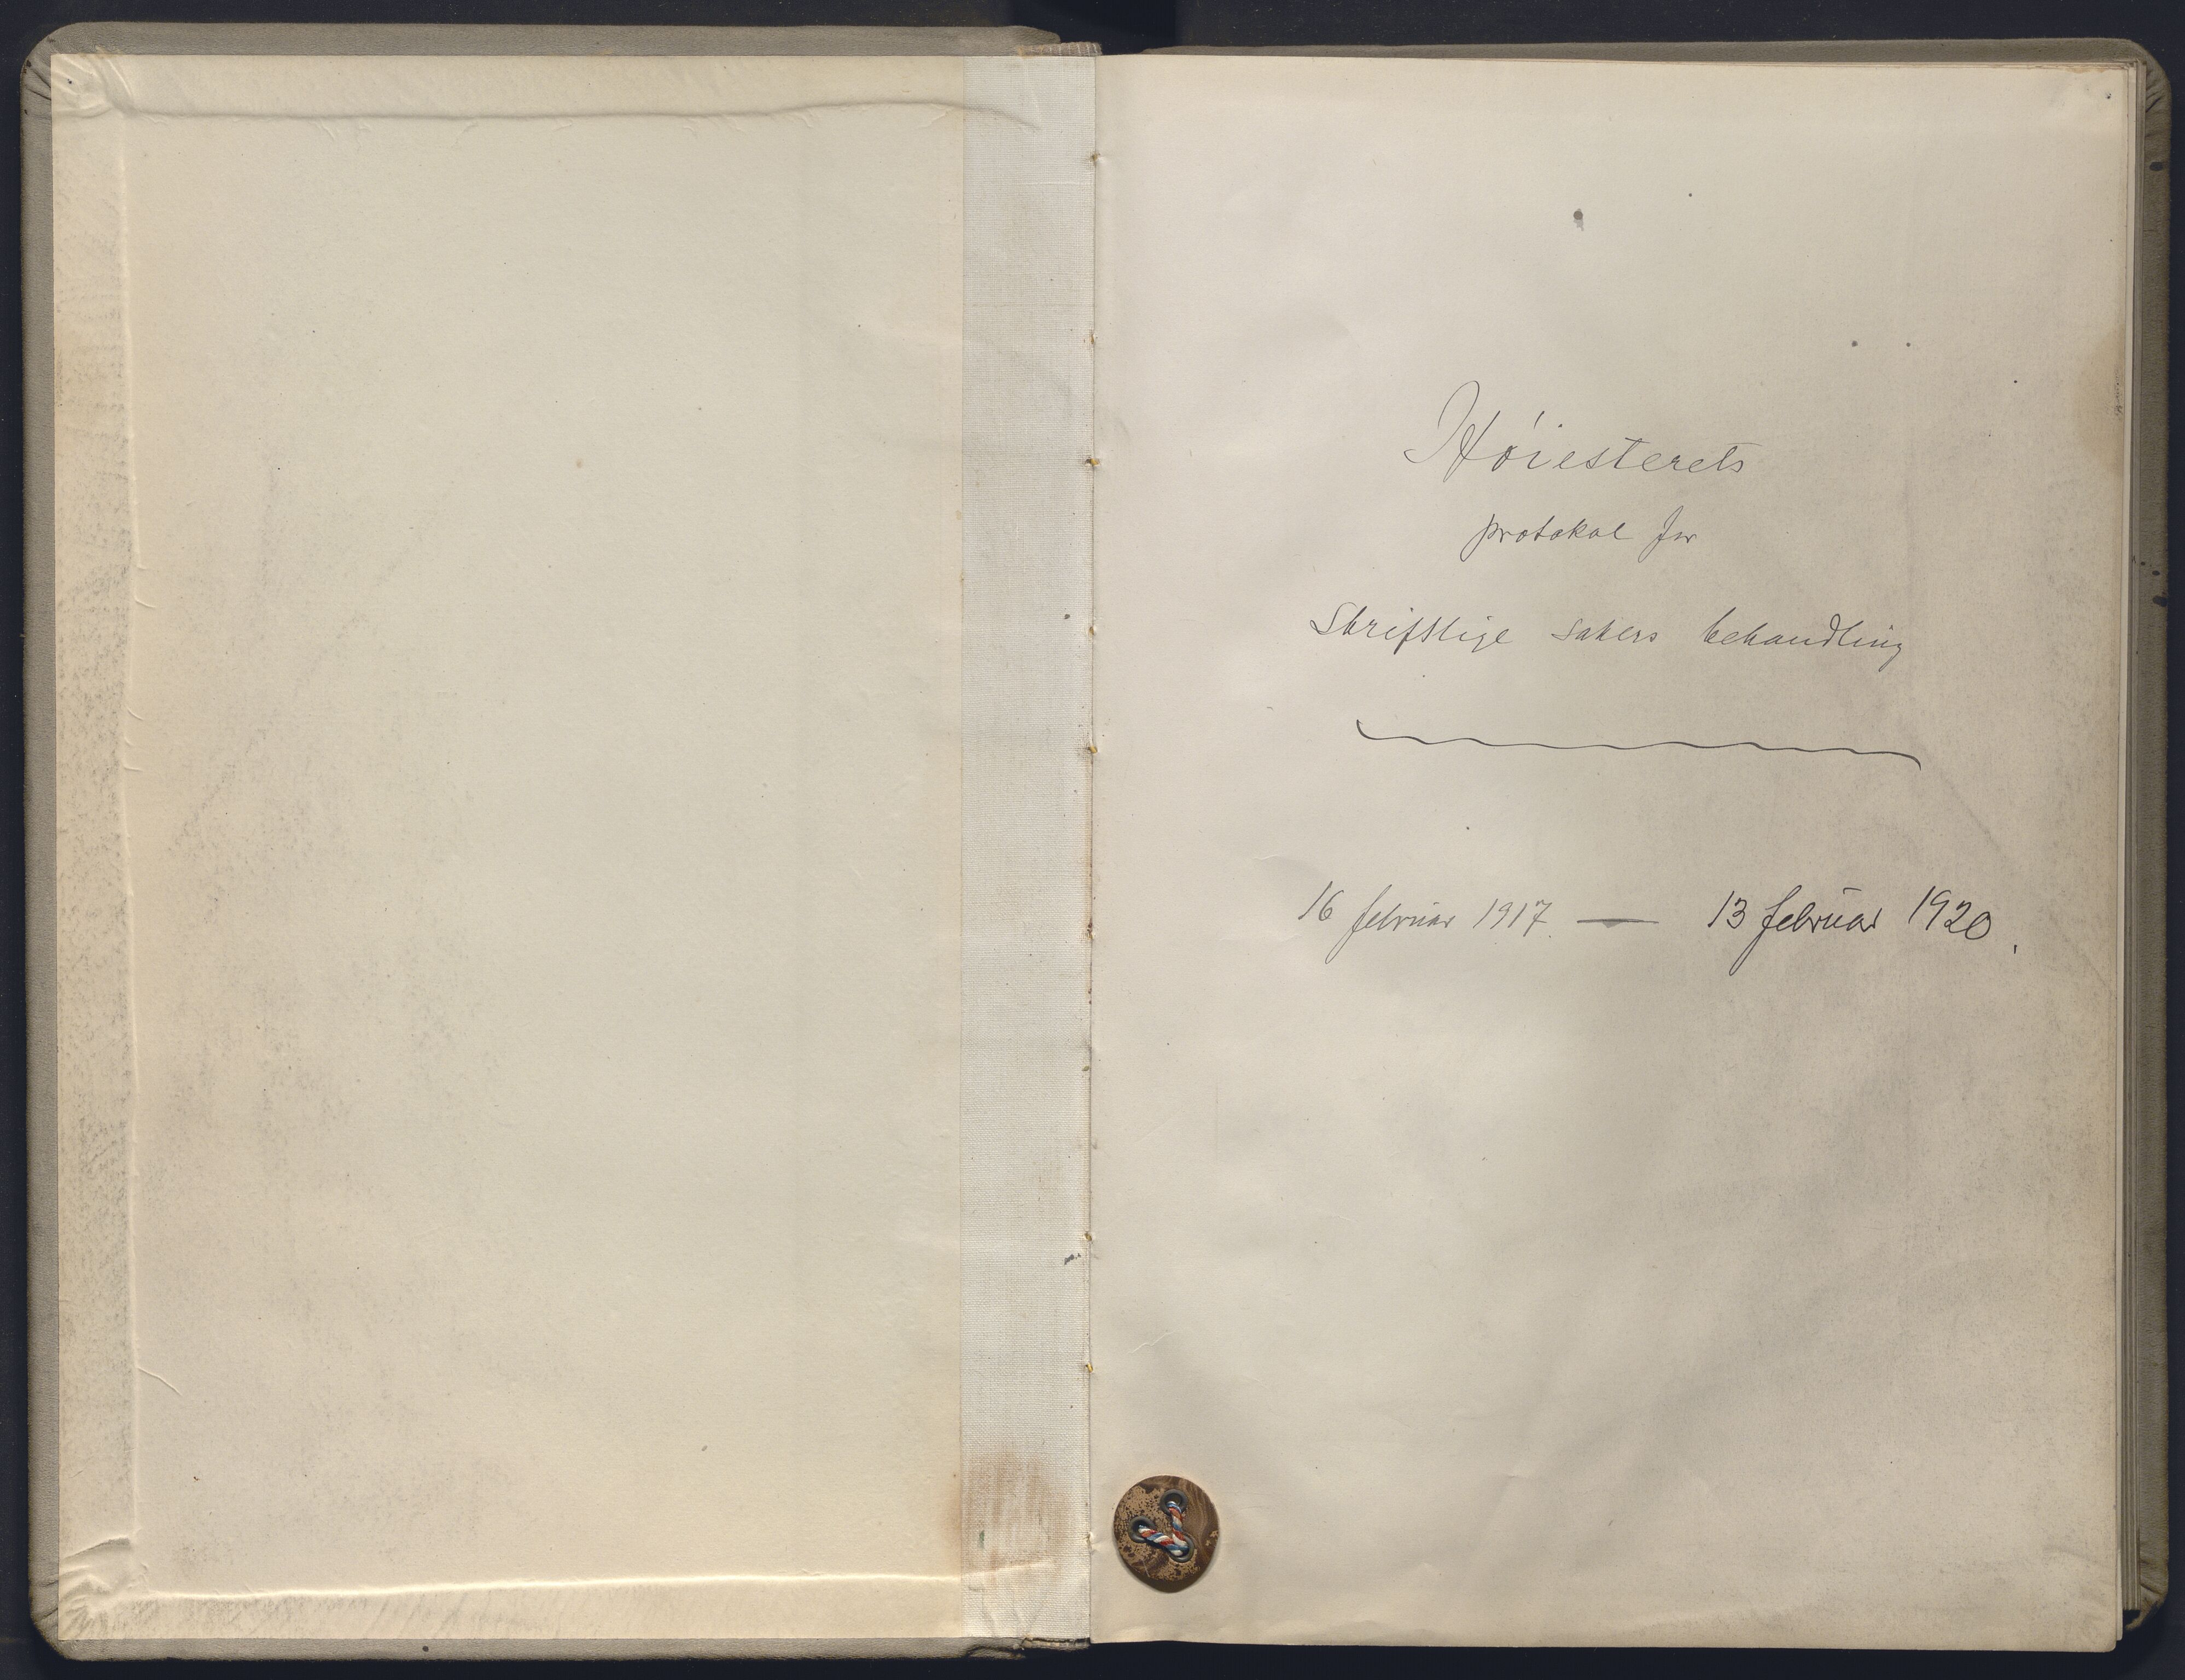 Høiesterets
protokol for
Skriftlige sakers behandling
16 februar 1917. — 13 februar 1920.